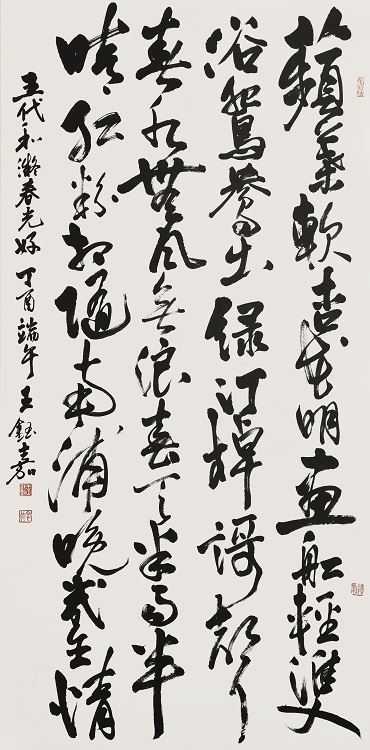 蘋葉軟杏花明畫舡輕雙
浴鴛鴦出綠汀棹謌聲
春水無風無浪春天半雨半
晴紅粉相隨南浦晚幾含情
五代和凝春光好 丁酉端午 王鈺嘉